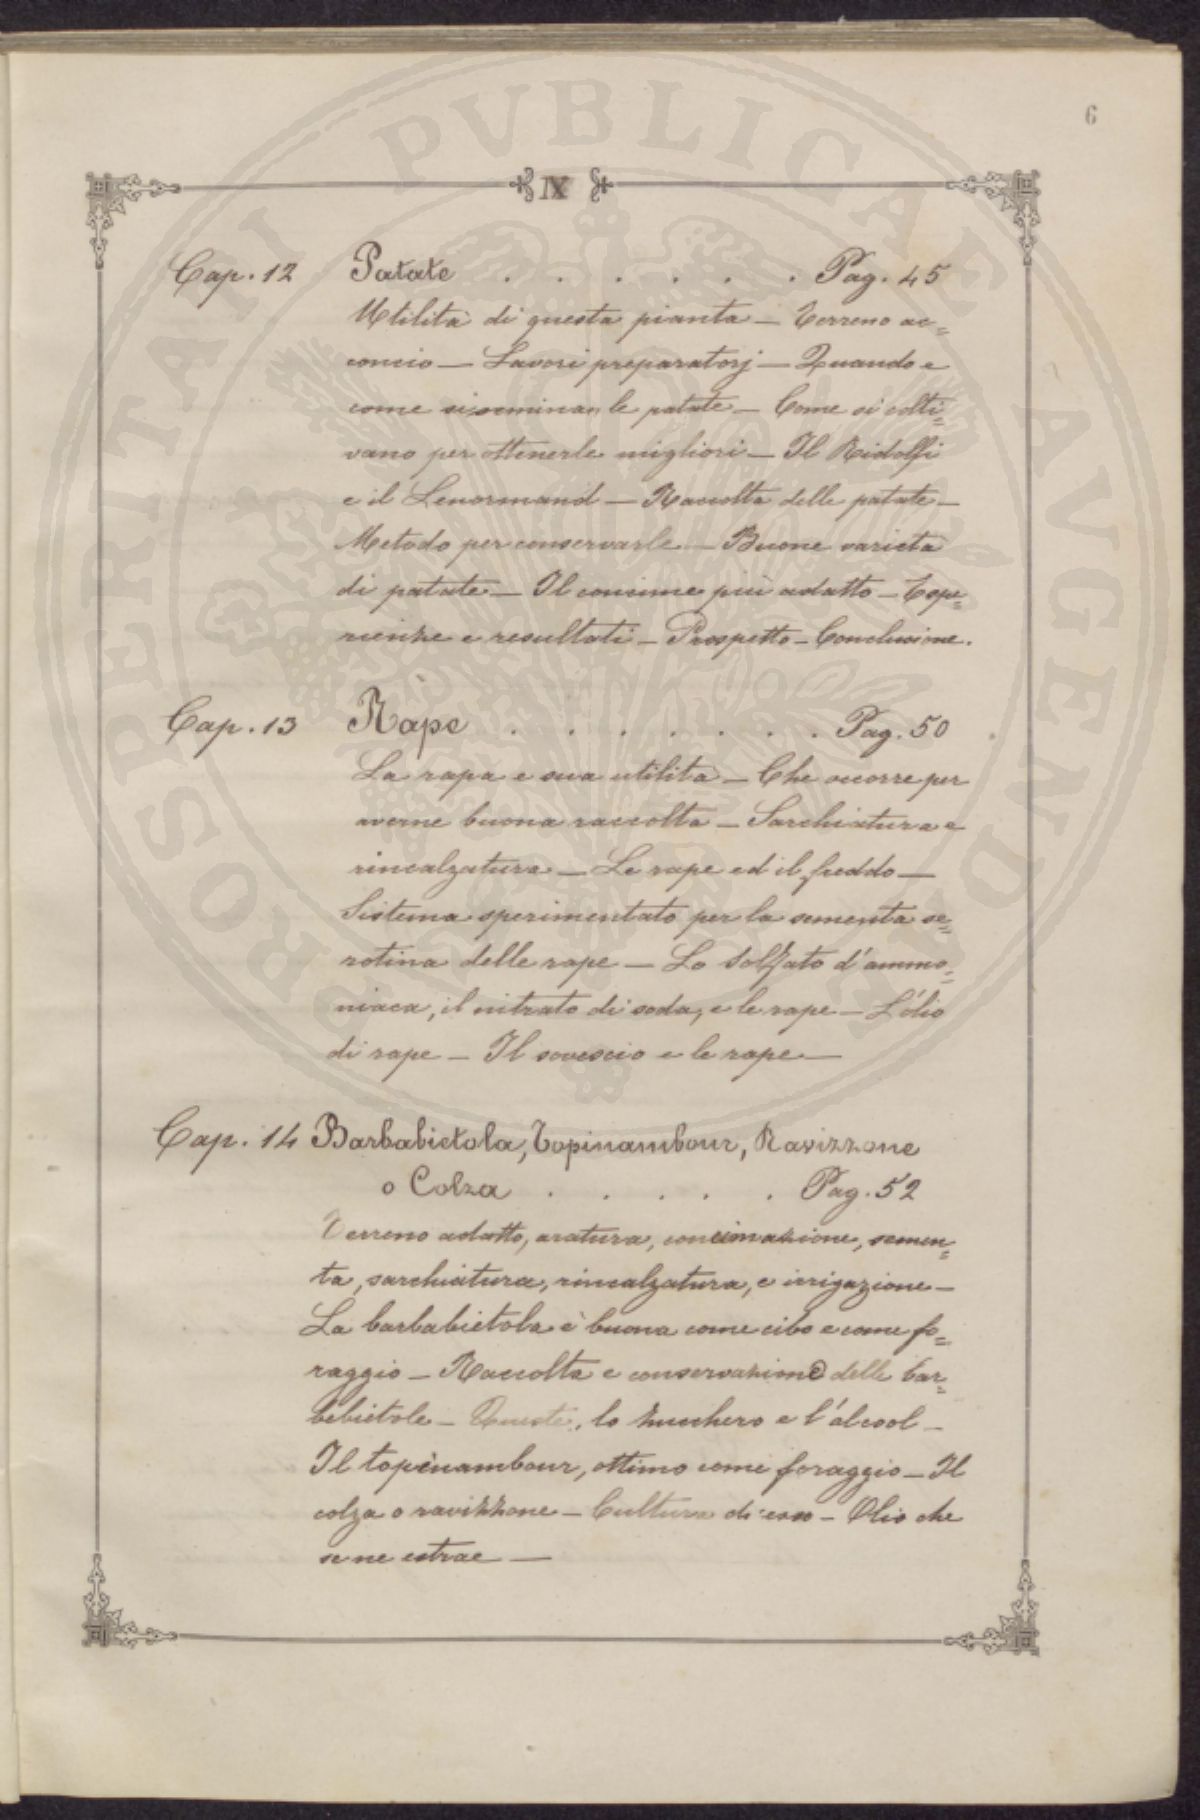 PROSPERITATI PVBLICAE AVGENDAE
6
IX
Cap. 12 Patate . . . . . . Pag. 45
Utilità di questa pianta — Terreno ac=
concio — Lavori preparatorj — Quando e
come si seminan le patate — Come si colti=
vano per ottenerle migliori — Il Ridolfi
e il Lenormand — Raccolta delle patate —
Metodo per conservarle — Buone varietà
di patate — Il concime più adatto — Espe=
rienze e resultati — Prospetto — Conclusione.
Cap. 13 Rape . . . . . . . Pag. 50
La rapa e sua utilità — Che occorre per
averne buona raccolta — Sarchiatura e
rincalzatura — Le rape ed il freddo —
Sistema sperimentato per la sementa se=
rotina delle rape — Lo Solfato d'ammo=
niaca, il nitrato di soda, e le rape — L'ólio
di rape — Il sovescio e le rape —
Cap. 14 Barbabietola, Topinambour, Ravizzone
o Colza . . . . . Pag. 52
Terreno adatto, aratura, concimazione, semen=
ta, sarchiatura, rincalzatura, e irrigazione —
La barbabietola è buona come cibo e come fo=
raggio — Raccolta e conservazione delle bar=
bebietole — Queste, lo zucchero e l'álcool —
Il topinambour, ottimo come foraggio — Il
colza o ravizzone — Cultura di esso — Olio che
se ne estrae —